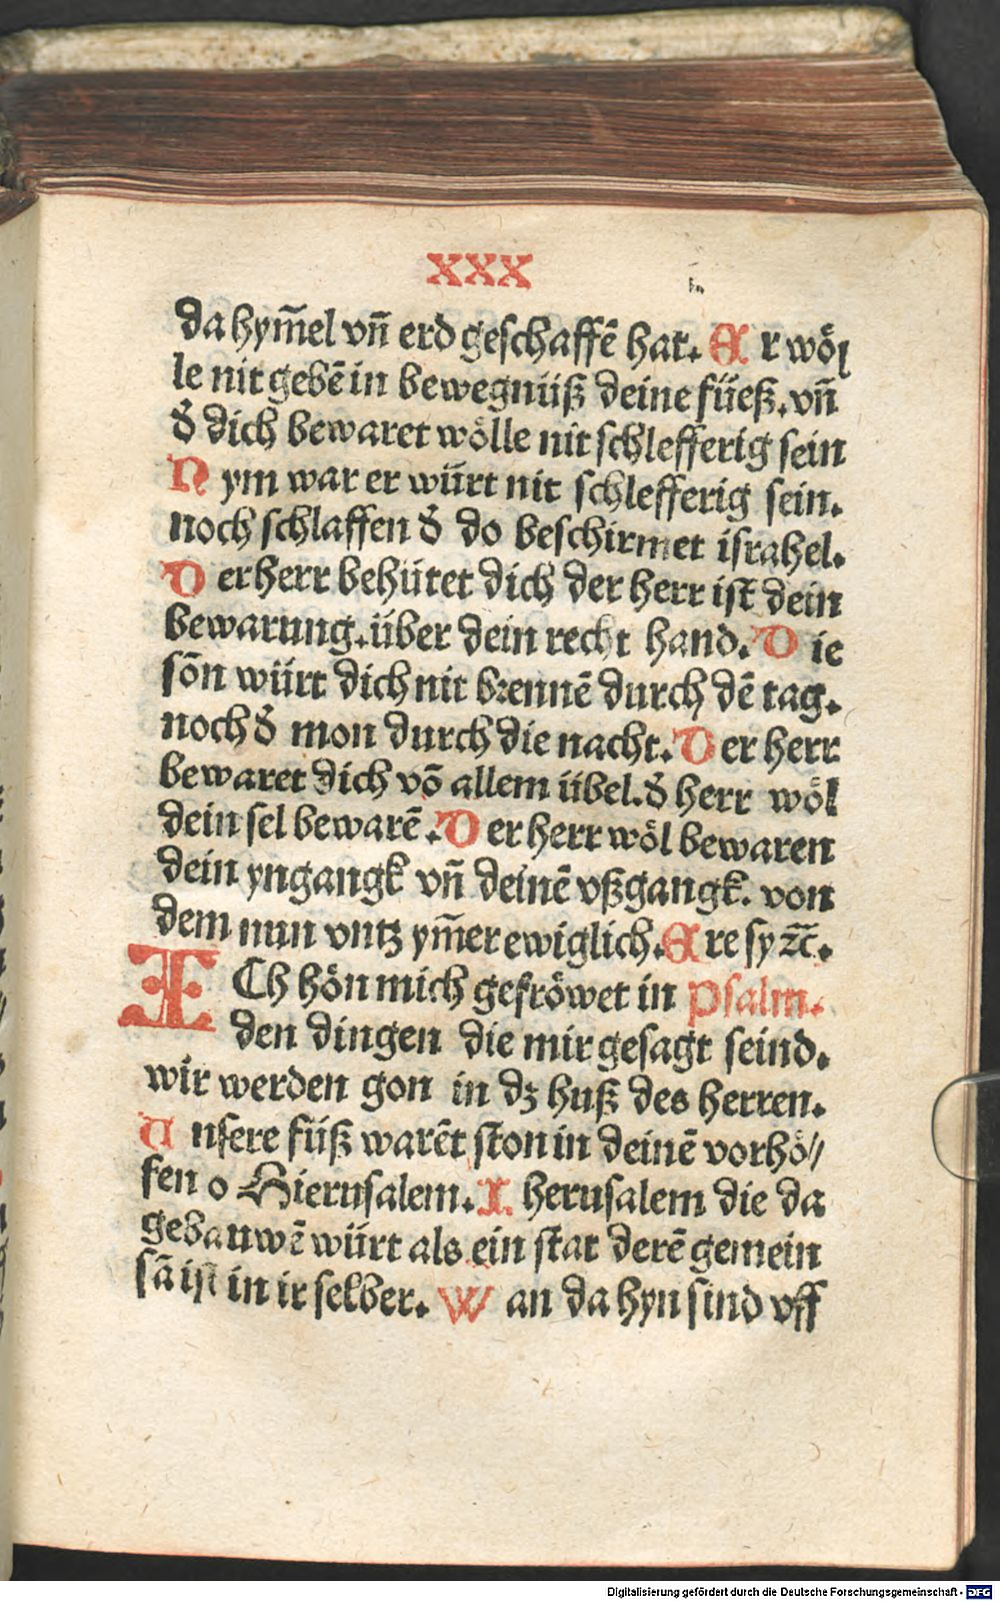 XXX
da hym̄el vn̄ erd geschaffē hat. Er wöl
le nit gebē in bewegnüß deine füeß. vn̄
d̓ dich bewaret wölle nit schlefferig sein
Nym war er würt nit schlefferig sein.
noch schlaffen d̓ do beschirmet israhel.
Der herr behütet dich der herr ist dein
bewarung. über dein recht hand. Die
són würt dich nit brennē durch dē tag.
noch d̓ mon durch die nacht. Der herr
bewaret dich vō allem übel. d̓ herr wöl
dein sel bewarē. Der herr wöl bewaren
dein yngangk vn̄ deinē vßgangk. von
dem nun vntz ym̄er ewiglich. Ere sy ꝛc̄.
ICh hön mich gefröwet in Psalm.
den dingen die mir gesagt seind.
wir werden gon in dz huß des herren.
Unsere füß warēt ston in deinē vorhö//
fen o Hierusalem. Iherusalem die da
gebauwē würt als ein stat derē gemein
sā ist in ir selber. Wan da hyn sind vff
Digitalisierung gefördert durch die Deutsche Forschungsgemeinschaft - DFG